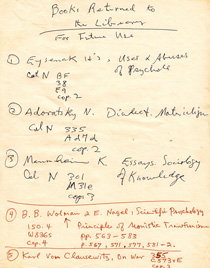 Books Returned to
the Library
For Future Use
① Eysenck H's, Uses & Abuses
Cal N BF of Psychol
38
E9
cop. 2
② Adoratsky N. Dialect. Materialism
Cal N 335
Ad7d
cop 2
③ Mannheim K Essays Sociology
Cal N 301 of Knowledge
M31e
cop. 3
④ B.B. Wolman & E. Nagel, Scientific Psychology
150.4 Principles of Monistic Transitionism
W836s pp. 563-583
cop. 4 P. 567, 571, 577, 581-2.
⑤ Karl von Clausewitz, On War 355
C573xE
cop. 2